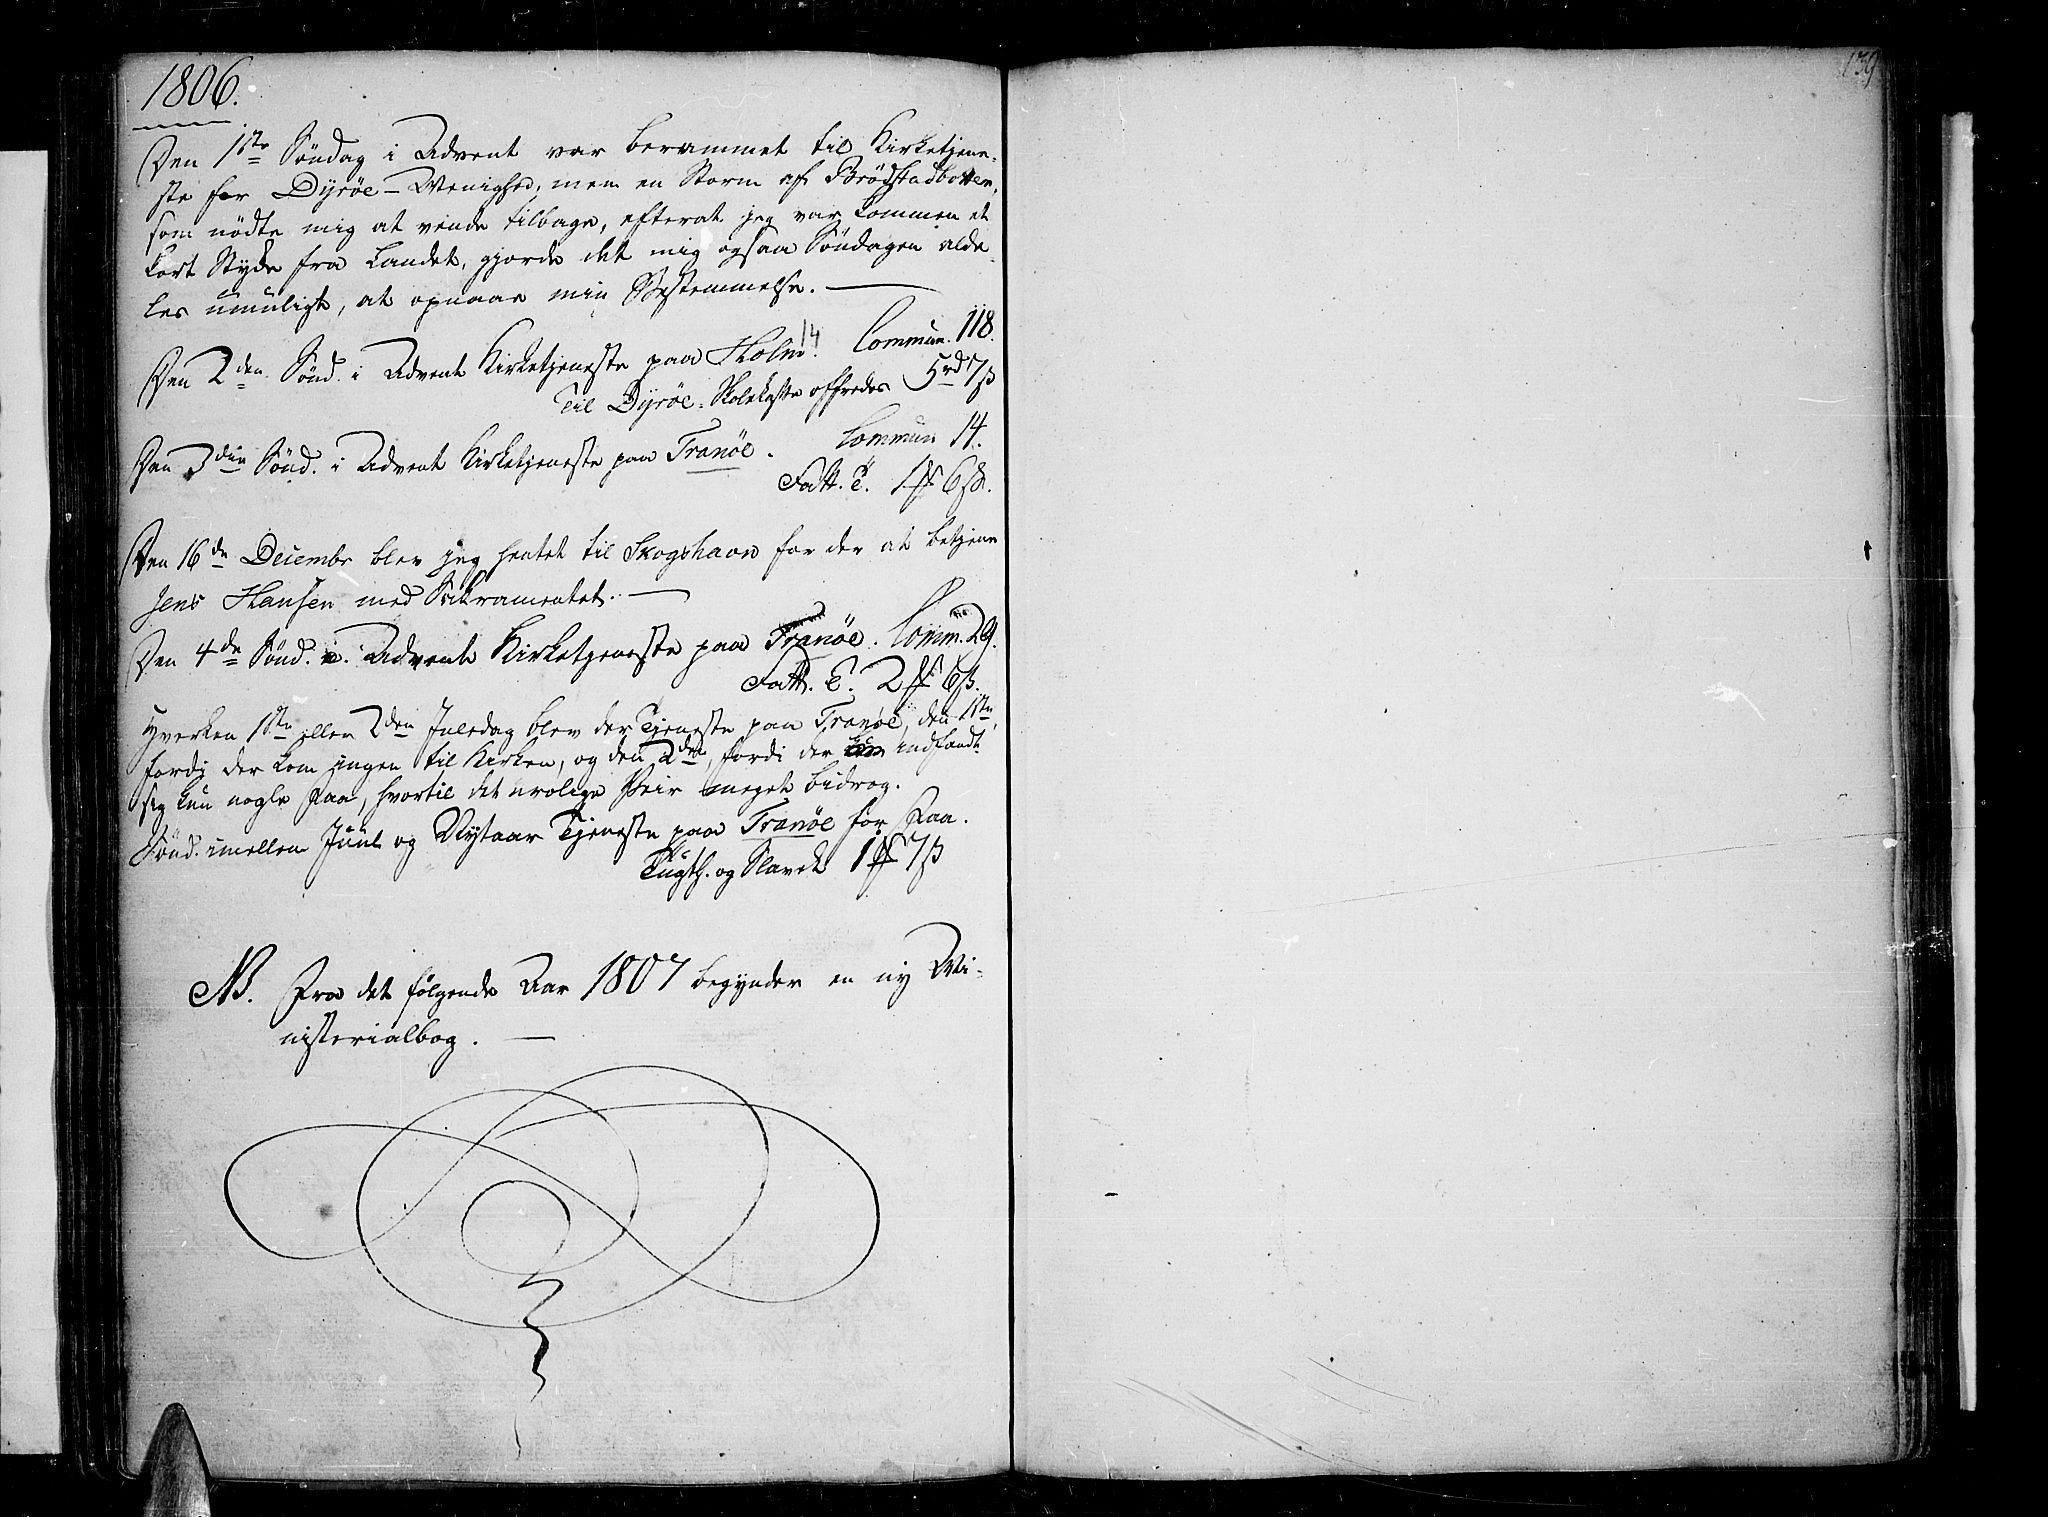 1806.
139
Den 1ste Søndag i Advent var berammet til Kirketjene-
ste for Dyrøe-Menighed, men en Storm af Brødstadbotten,
som nødte mig at vende tilbage, efterat jeg var kommen et
kort Stykke fra Landet, gjorde det mig ogsaa Søndagen alde-
les umuligt, at opnaae min Bestemmelse. —
Den 2den Sønd. i Advent Kirketjeneste paa Holm. 14 Commun. 118.
Til Dyrøe-Skolekasse offredes 5rd 7ß
Den 3die Sønd. i Advent Kirketjeneste paa Tranøe. Commun 14.
Fatt. T. 1 6ß.
Den 16de Decembr blev jeg hentet til Skogshavn for der at betjene
Jens Hansen med Sakramentet. —
Den 4de Sønd. i Advent Kirketjeneste paa Tranøe. Comm. 29.
Fatt. T. 2 6ß.
Hverken 1ste eller 2den Juledag blev der Tjeneste paa Tranøe, den 1ste,
fordi der kom ingen til Kirken, og den 2den, fordi der indfandt
sig kun nogle Faa, hvortil det urolige Veir meget bidrog.
Sønd. imellem Juul og Nytaar Tjeneste paa Tranøe for Faa.
Tugth. og Slavek 1 7ß
NB. Fra det følgende Aar 1807 begynder en ny Mi-
nisterialbog. —